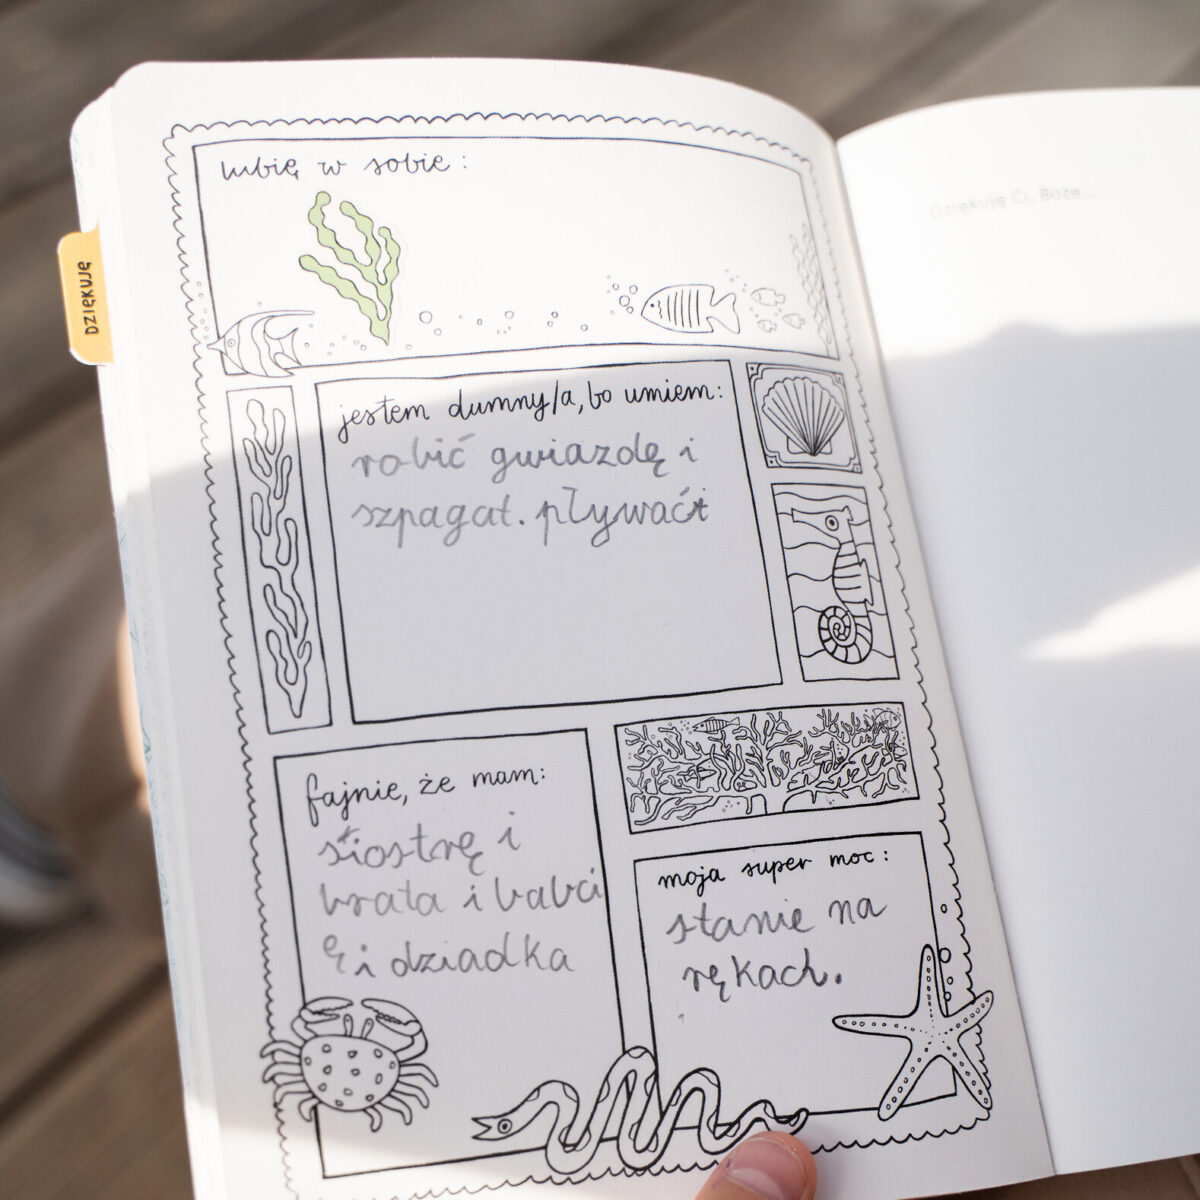 lubię w sobie:
DZIĘKUJĘ
Dziękuję Ci, Boże...
jestem dumny/a, bo umiem:
robić gwiazdę i
szpagat. pływać
fajnie, że mam:
siostrę i
brata i babci
ę i dziadka
moja super moc:
stanie na
rękach.